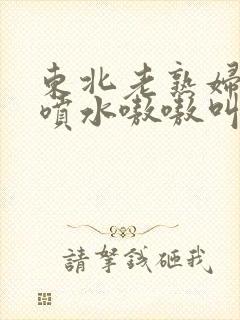 東北老熟婦
噴水嗷嗷叫
請拏錢砸我